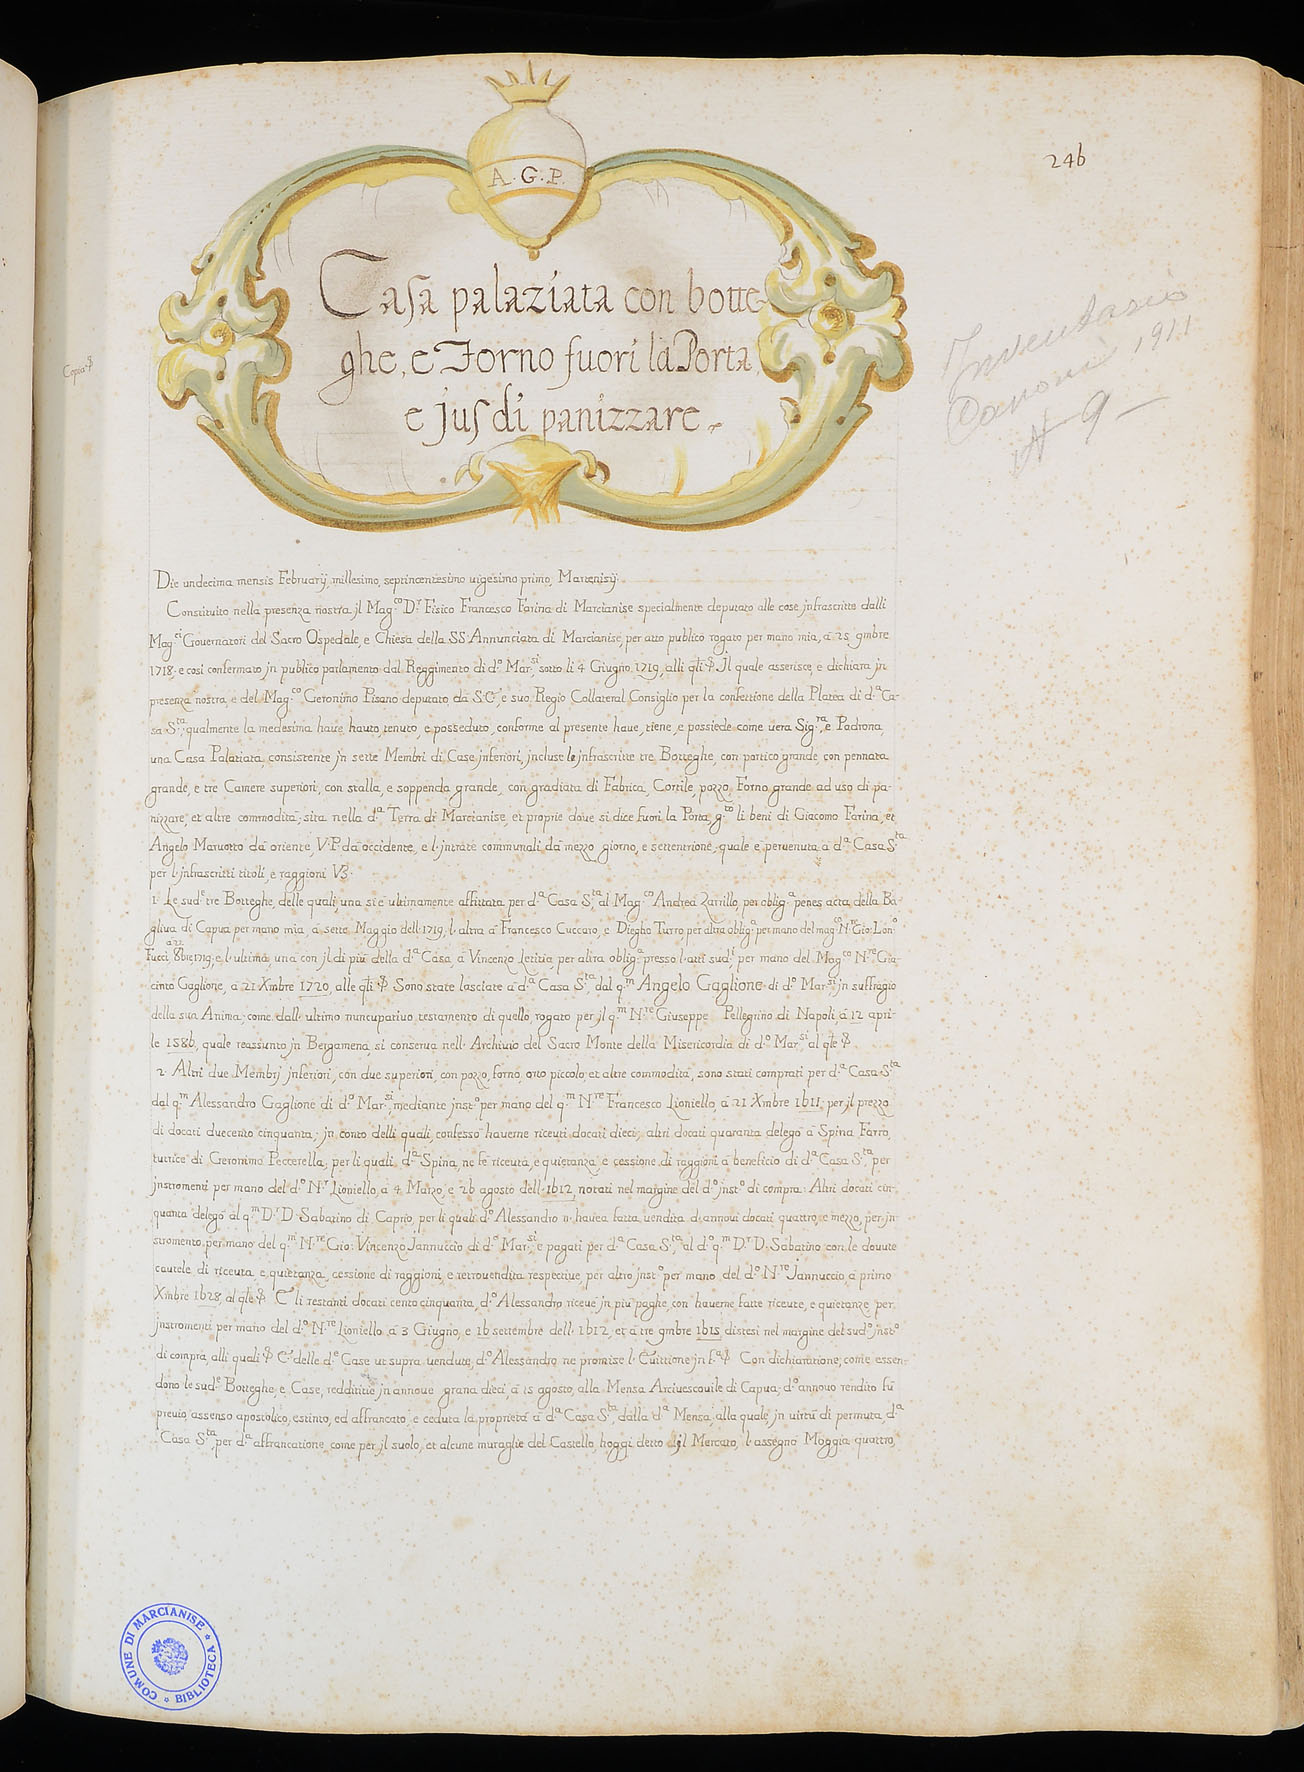 246
A. G. P.
Casa palaziata con botte-
ghe, e Forno fuori la Porta,
e jus di panizzare.
Inventario
Canoni 1911
N 9 —
Copia
Die undecima mensis Februarij millesimo, septincentesimo uigesimo primo, Martenisij.
Constituito nella presenza nostra jl Mag.co D.r Fisico Francesco Farina di Marcianise specialmente deputato alle cose jnfrascritte dalli
Mag.ci Gouernatori del Sacro Ospedale, e Chiesa della SS. Annunciata di Marcianise, per atto publico rogato per mano mia, à 25 9mbre
1718. e così confermato jn publico parlamento dal Reggimento di d.o Mar.si sotto li 4 Giugno 1719, alli qli Jl quale asserisce, e dichiara jn
presenza nostra, e del Mag.co Geronimo Pisano deputato da S.C., e suo Regio Collateral Consiglio per la confettione della Platea di d.a Ca-
sa S.ta, qualmente la medesima haue hauto, tenuto, e posseduto, conforme al presente haue, tiene, e possiede come uera Sig.ra, e Padrona,
una Casa Palatiata, consistente jn sette Membri di Case jnferiori, jncluse le jnfrascritte tre Botteghe, con portico grande, con pennata
grande, e tre Camere superiori, con stalla, e soppenda grande, con gradiata di Fabrica, Cortile, pozzo, Forno grande ad uso di pa-
nizzare, et altre commodità; sita nella d.a Terra di Marcianise, et proprie doue si dice fuori la Porta, g.to li beni di Giacomo Farina, et
Angelo Maruotto da oriente, V.P. da occidente, e l'jntrate communali da mezzo giorno, e settentrione, quale è peruenuta à d.a Casa S.ta
per l'jnfrascritti titoli, e raggioni V3.
1. Le sud.e tre Botteghe, delle quali, una si è ultimamente affittata per d.a Casa S.ta al Mag.co Andrea Zarrillo, per oblig.a penes acta della Ba-
gliua di Capua per mano mia, à sette Maggio dell'1719, l'altra à Francesco Cuccaro, e Diegho Turro, per altra oblig.a per mano del mag.co N.re Gio: Lon.o
Fucci à 22 8bre 1719, e l'ultima, una con jl di più della d.a Casa, à Vincenzo Letizia, per altra oblig.a presso l'atti sud.i per mano del Mag.co N.re Gia-
cinto Gaglione, à 21 Xmbre 1720, alle qli Sono state lasciate à d.a Casa S.ta dal q.m Angelo Gaglione di d.o Mar.si jn suffragio
della sua Anima, come dall'ultimo nuncupatiuo testamento di quello, rogato per jl q.m N.re Giuseppe Pellegrino di Napoli, à 12 apri-
le 1586, quale reassunto jn Bergamena, si conserua nell'Archiuio del Sacro Monte della Misericordia di d.o Mar.si al qle
2. Altri due Membrj jnferiori, con due superiori, con pozzo, forno, orto piccolo, et altre commodità, sono stati comprati per d.a Casa S.ta
dal q.m Alessandro Gaglione di d.o Mar.si, mediante jnst.o per mano del q.m N.re Francesco Lioniello, à 21 Xmbre 1611, per jl prezzo
di docati duecento cinquanta; jn conto delli quali, confessò hauerne riceuti docati dieci; altri docati quaranta delegò à Spina Farro,
tutrice di Geronimo Peccerella, per li quali, d.a Spina, ne fè riceuta, e quietanza, e cessione di raggioni à beneficio di d.a Casa S.ta, per
jnstromenti per mano del d.o N.r Lioniello, à 4 Marzo, e 26 agosto dell'1612, notati nel margine del d.o jnst.o di compra: Altri docati cin-
quanta delegò al q.m D.r D. Sabatino di Caprio, per li quali d.o Alessandro n'hauea fatta uendita d'annoui docati quattro, e mezzo, per jn-
stromento per mano del q.m N.re Gio: Vincenzo Jannuccio di d.o Mar.si, e pagati per d.a Casa S.ta al d.o q.m D.r D. Sabatino con le douute
cautele di riceuta e quietanza, cessione di raggioni, e retrouendita respectiue, per altro jnst.o per mano del d.o N.re Jannuccio, à primo
Xmbre 1628, al qle E li restanti docati cento cinquanta, d.o Alessandro riceuè jn più paghe, con hauerne fatte riceute, e quietanze, per
jnstromenti per mano del d.o N.re Lioniello, à 3 Giugno, e 16 settembre dell'1612, et à tre 9mbre 1615, distesi nel margine del sud.o jnst.o
di compra, alli quali E delle d.e Case ut supra uendute, d.o Alessandro ne promise l'Euittione jn f.a Con dichiaratione, come essen-
dono le sud.e Botteghe, e Case, reddititie jn annoue grana dieci, à 15 agosto, alla Mensa Arciuescouile di Capua; d.o annouo rendito fù
preuio assenso apostolico, estinto, ed affrancato, e ceduta la proprietà à d.a Casa S.ta dalla d.a Mensa, alla quale, jn uirtù di permuta, d.a
Casa S.ta, per d.a affrancatione, come per jl suolo, et alcune muraglie del Castello, hoggi detto jl Mercato, l'assegnò Moggia quattro,
COMUNE DI MARCIANISE * BIBLIOTECA *